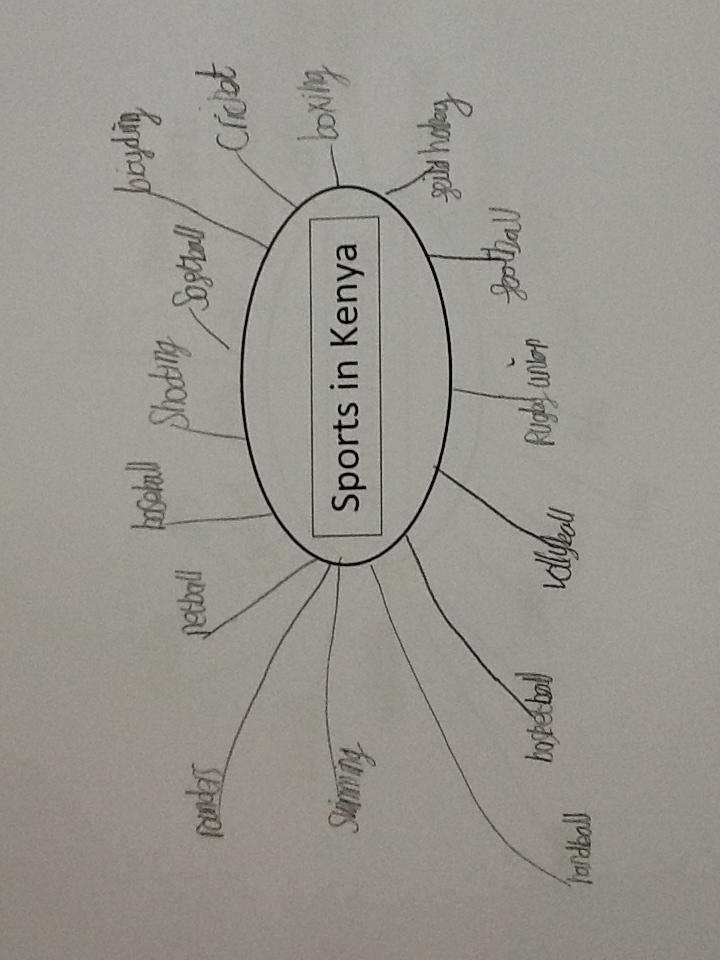 Sports in Kenya
rounders
netball
baseball
Shooting
Softball
bicycling
Cricket
boxing
feild hockey
football
Rugby union
Vollyball
basketball
handball
Swimming